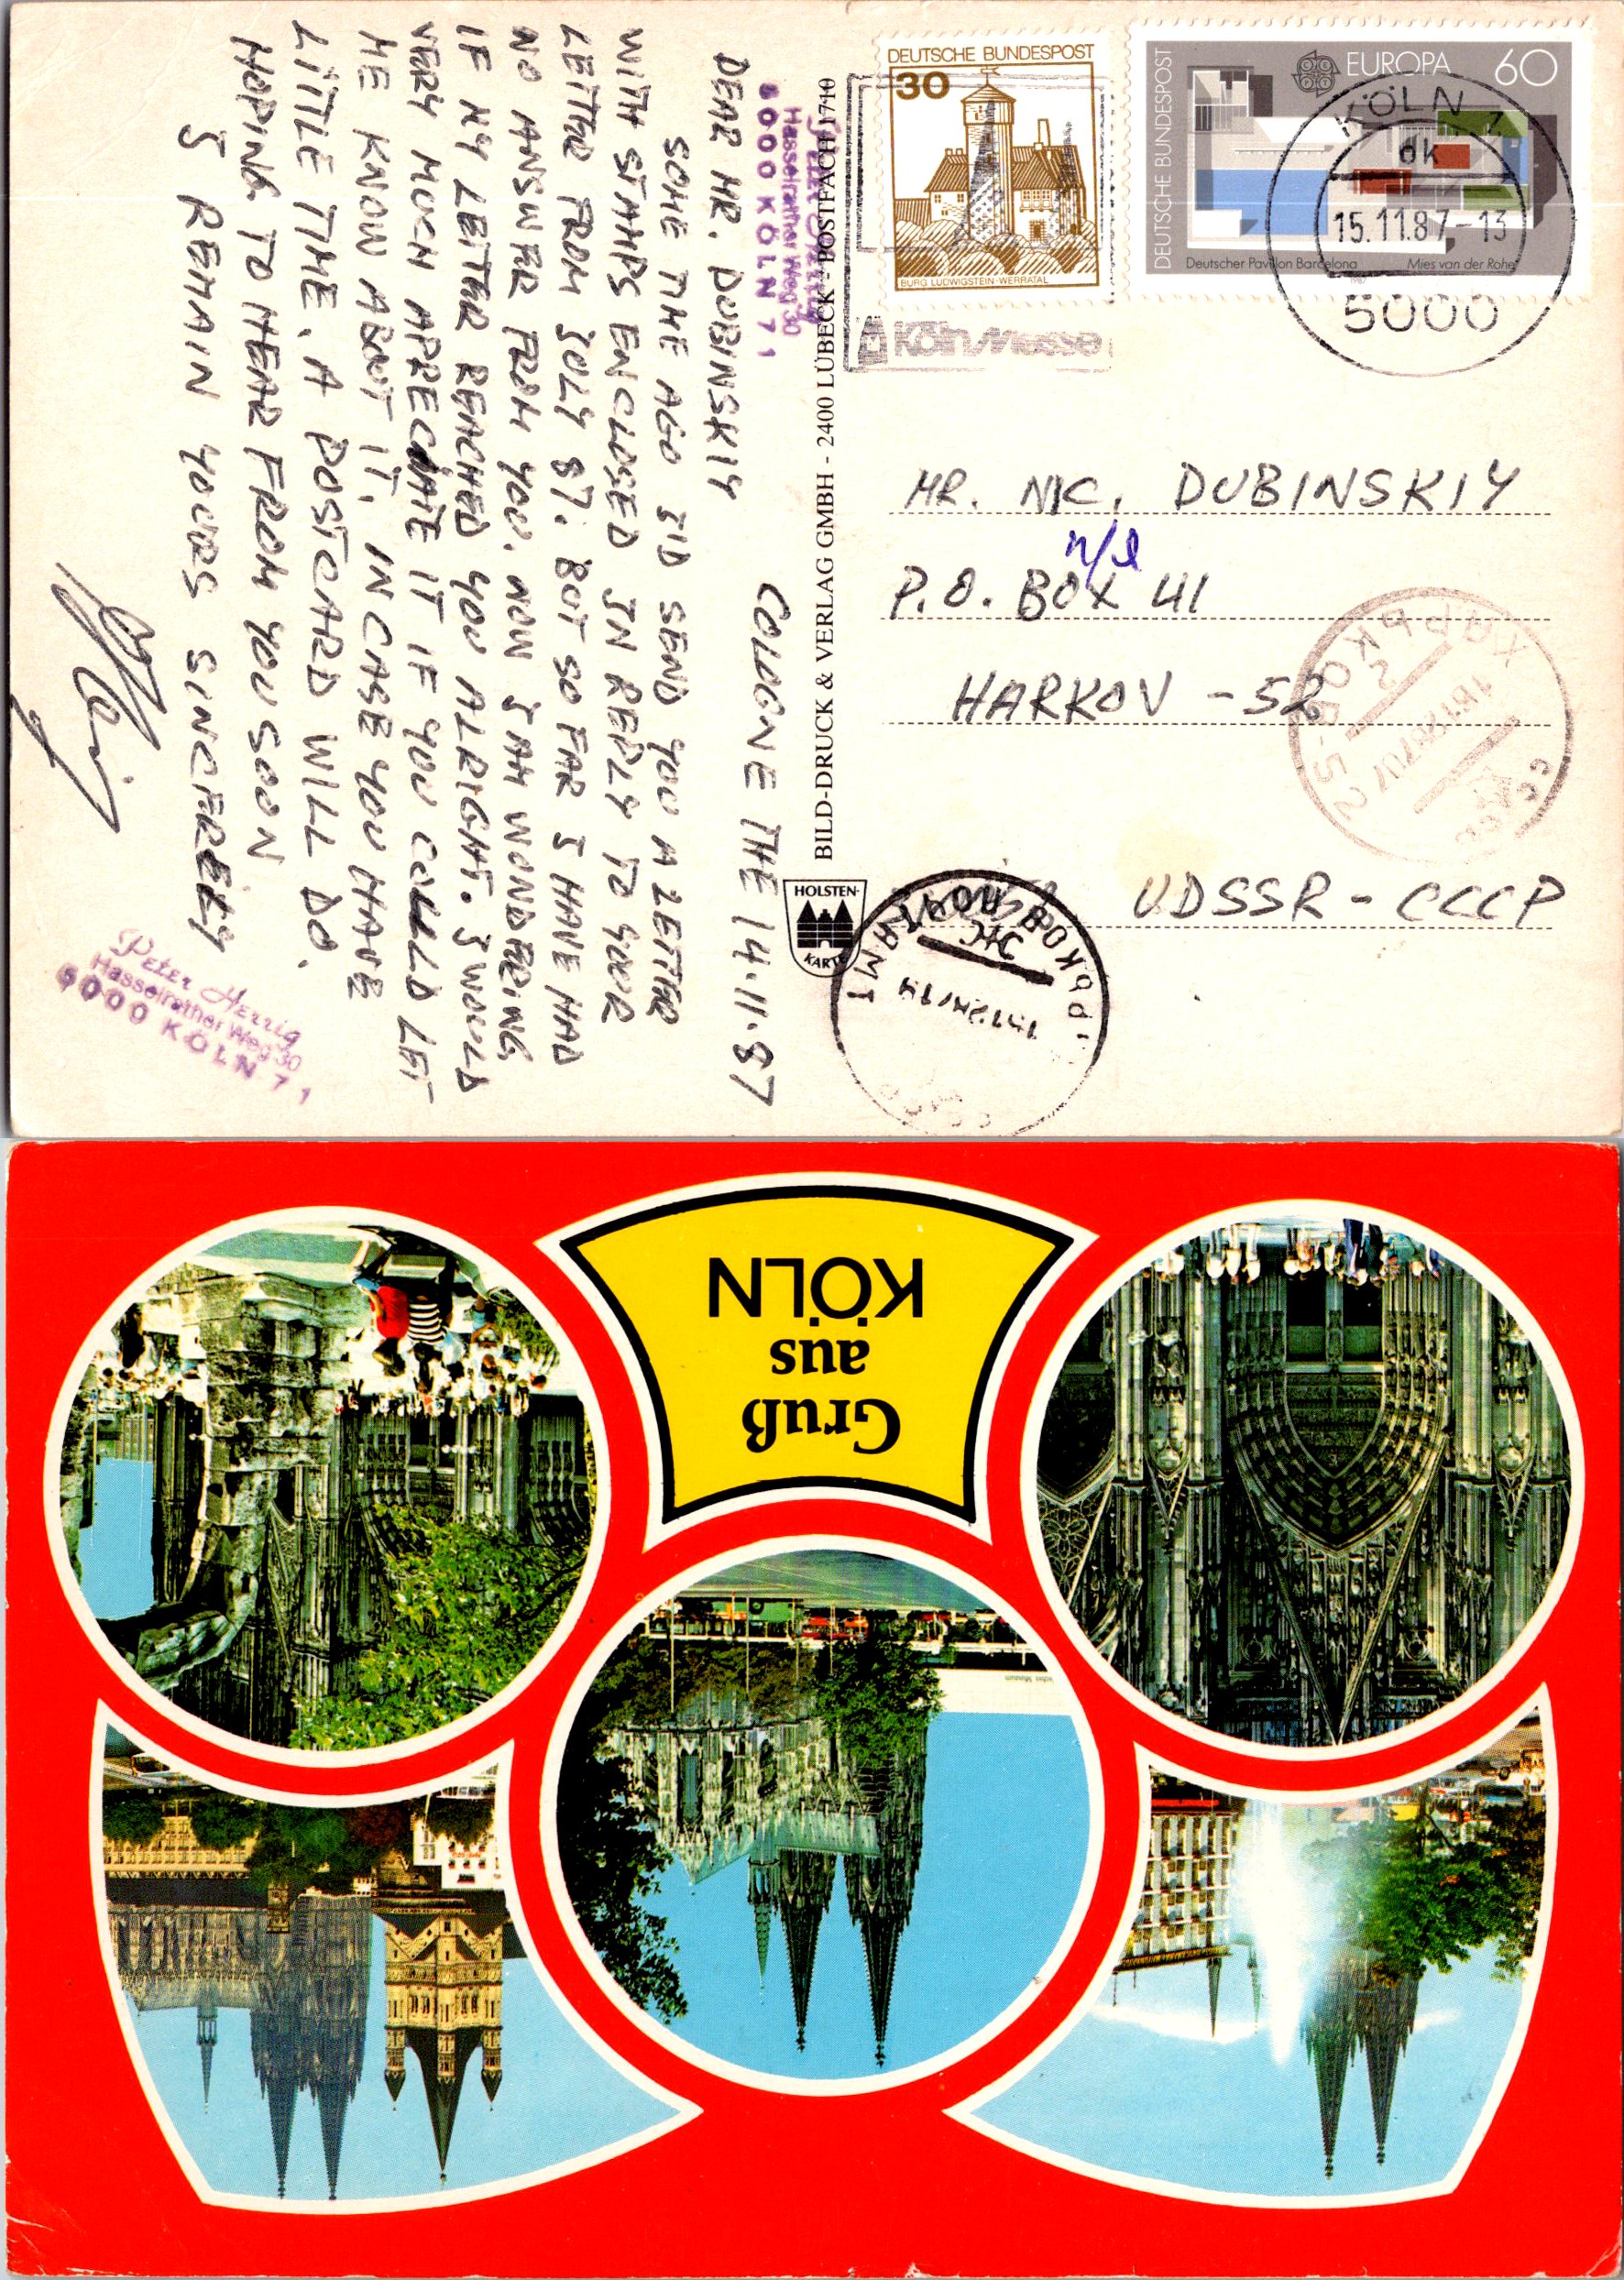 COLOGNE THE 14.11.87
DEAR MR. DUBINSKIY
SOME TIME AGO I'D SEND YOU A LETTER
WITH STAMPS ENCLOSED IN REPLY TO YOUR
LETTER FROM JULY 87. BUT SO FAR I HAVE HAD
NO ANSWER FROM YOU. NOW I AM WONDERING
IF MY LETTER REACHED YOU ALRIGHT. I WOULD
VERY MUCH APRECIATE IT IF YOU COULD LET
ME KNOW ABOUT IT. IN CASE YOU HAVE
LITTLE TIME. A POSTCARD WILL DO.
HOPING TO HEAR FROM YOU SOON
I REMAIN YOURS SINCERELY
Peter Herrig
Hasselrather Weg 30
5000 KÖLN 71
Hasselrather Weg 30
5000 KÖLN 71
BILD-DRUCK & VERLAG GMBH - 2400 LÜBECK - POSTFACH 1710
HOLSTEN-
KARTE
DEUTSCHE BUNDESPOST
30
BURG LUDWIGSTEIN-WERRATAL
DEUTSCHE BUNDESPOST
EUROPA 60
Deutscher Pavillon Barcelona
Mies van der Rohe
1987
KÖLN 1
dk
15.11.87-13
5000
KölnMesse
MR. NIC. DUBINSKIY
n/l
P.O. BOX 41
HARKOV - 52
UDSSR - CCCP
ХАРЬКОВ-52
СССР
Gruß
aus
KÖLN